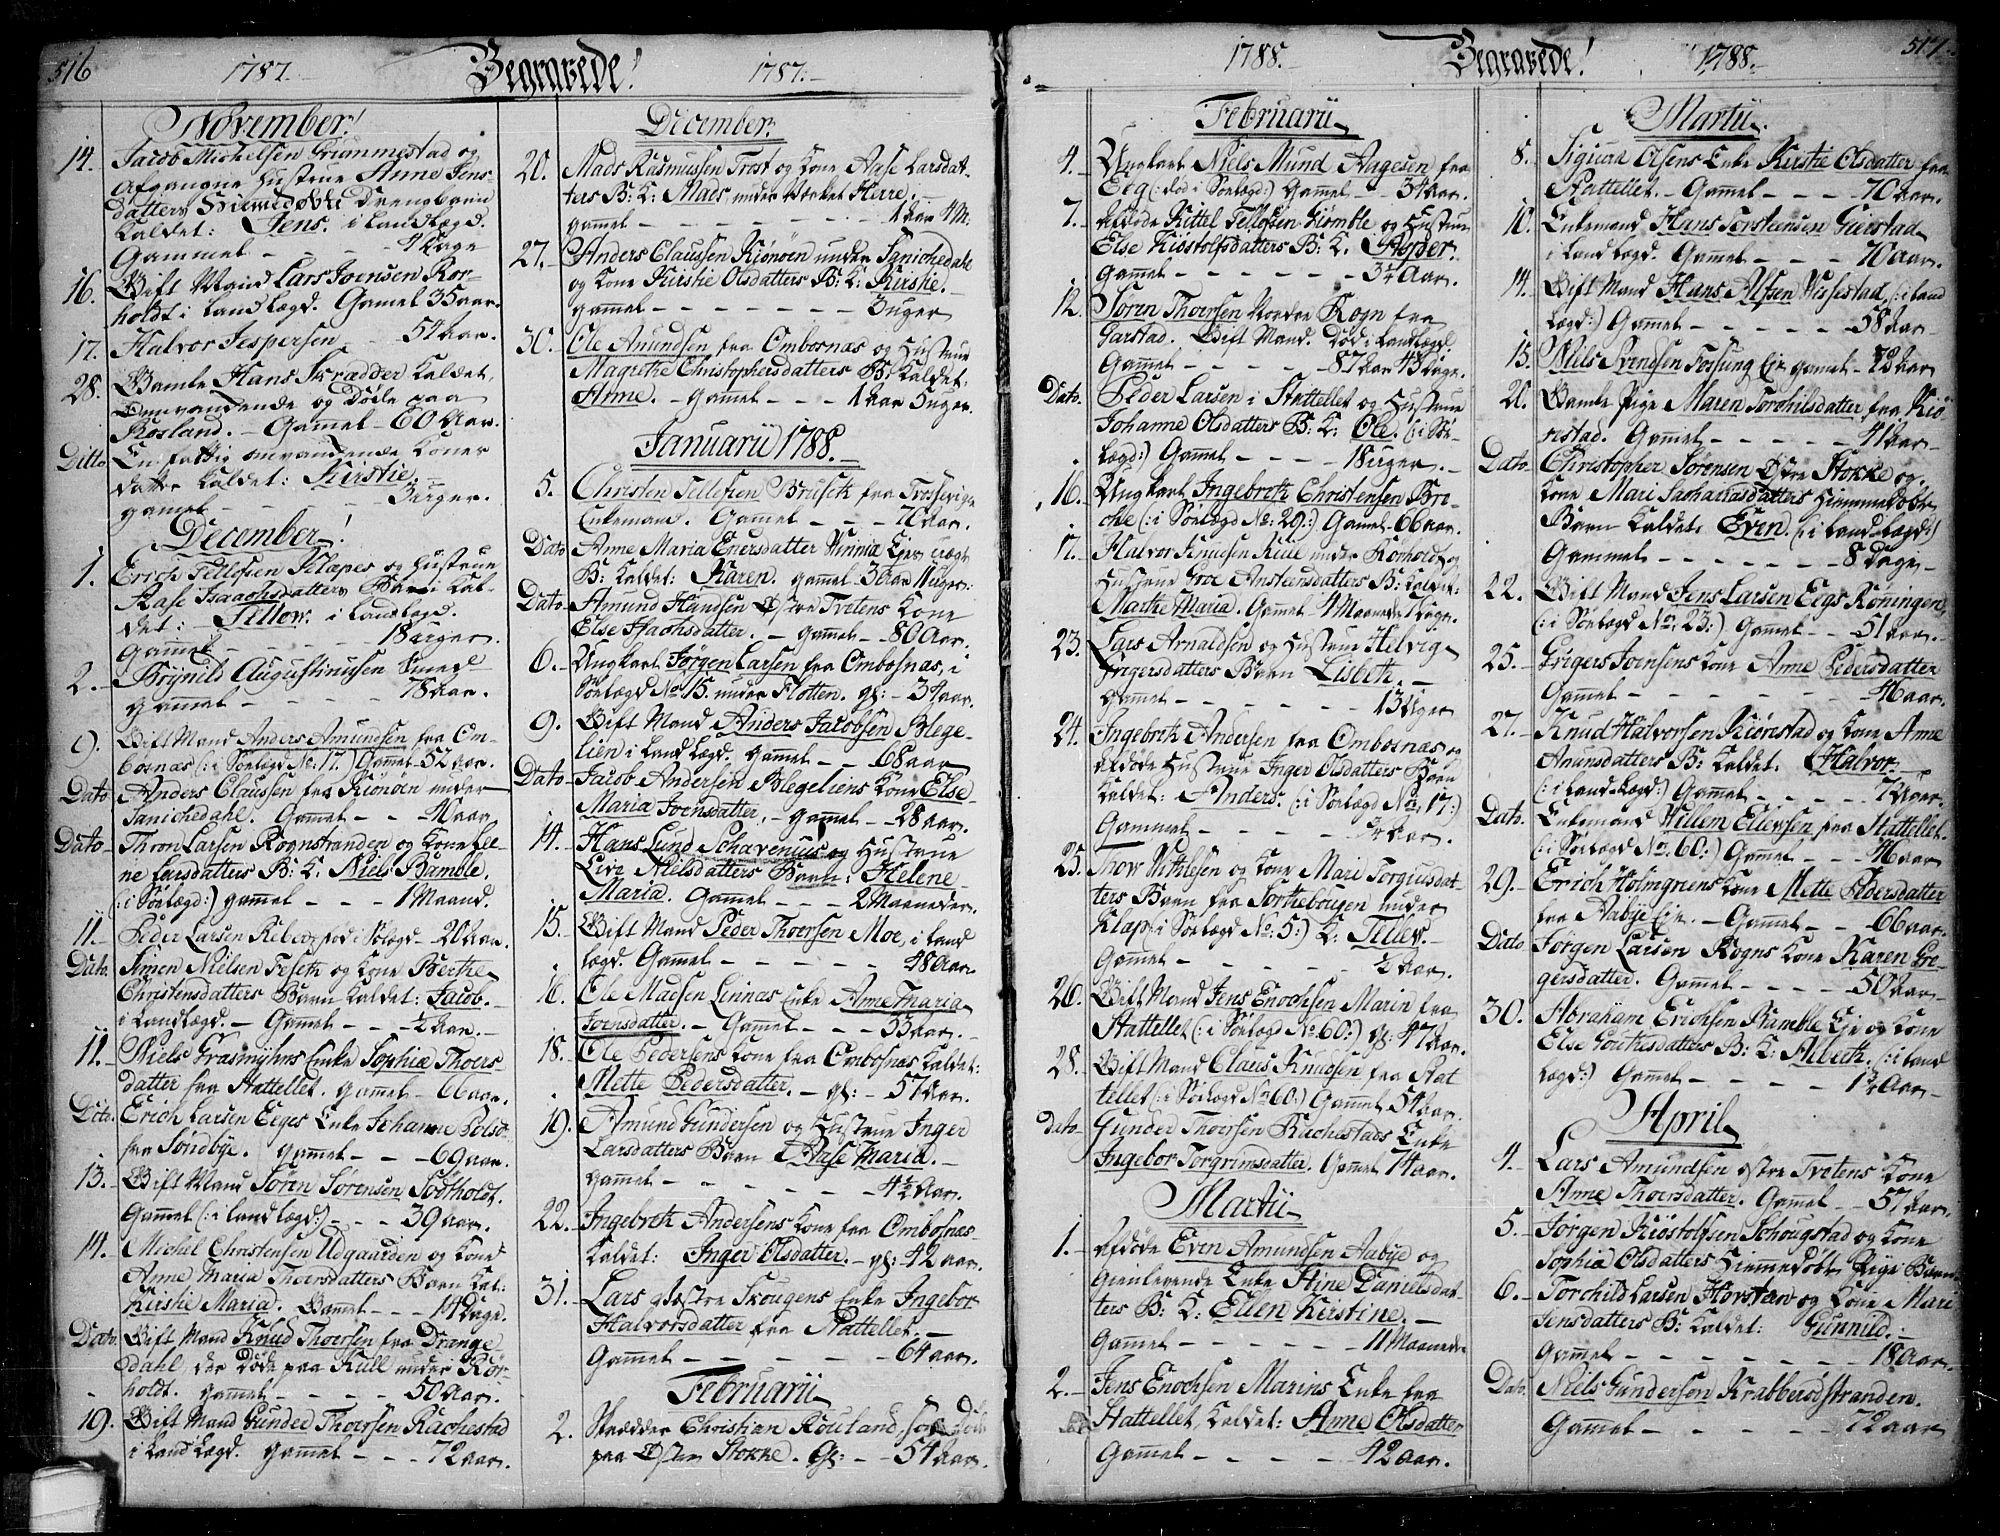 516
1787.
Begravede!
1787.
November!
14. Jacob Michelsen Grummestad og
Afgangne Hustrue Anne Jens-
datters Hiemedøbte Drengbarn
Kaldet: Jens. i Landlægd.
Gammel - 4 Dage
16. Gift Mand Lars Joensen Ror-
holdt i Land Lægd. Gamel 35 aar.
17. Halvor Jespersen - 54 aar.
28. Gamle Hans Skrædder Kaldet,
Omvandrende og Døde paa
Rosland. - Gamel - 60 Aar.
Ditto En fattig omvandrende Kones
datter Kaldet: Kirstie
gamel - 3 uger.
December!
1. Erich Tellefsen Klapes og Hustrue
Aase Isaachsdatters Barn Kal-
det: Tellov. i Landlægd.
Gammel - 18 uger.
2. Brynild Augustinusen
gammel - 78 aar.
9. Gift Mand Anders Amundsen fra Om-
bornæs (: i Søelægd No: 17.) Gamel 52 aar.
Dato Anders Claussen fra Kiønøen under
Janichedahl. Gamel - 4 aar
Dato Thron Larsen Rognstranden og Kone Le-
ne Larsdatters B: K. Niels Bamble.
(: i Søelægd:) gammel - 1 Maaned.
11. Peder Larsen Reberg, fød i Sølægd - 20 Aar.
Dato. Simon Nielsen Feseth og Kone Berthe
Christensdatters Barn Kaldet: Jacob.
i Landlægd. - Gamel - ½ Aar.
11. Niels Grasmyhrs Enke Sophia Thoers-
datter fra Stattellet. gammel - 66 aar.
Dito. Erich Larsen Eeges Enke Johanne
fra Søndbye. gammel - 69 aar.
13. Gift Mand Søren Sørensen Fodtholdt.
Gammel (: i land lægd:) - 39 aar.
14. Michel Christensen Udgaarden og Kone
Anne Maria Thoersdatters Barn Kal:
Kirstie Maria. Gammel - 14 Dage.
Dato. Gift Mand Knud Thoersen fra Drange-
dahl, der Døde paa Kull under Rör-
holdt. gammel - 50 Aar.
19. Gift Mand Gunder Thoersen Rachestad
i Land Lægd. gammel - 72 aar.
December.
20. Mads Rasmussen Trost og Kone Aase Larsdat-
ters B: K: Maes, under Værket Herre.
gamel - 1 aar 4 M.
27. Anders Claussen Kiønøen under Janichedahl
og Kone Kirstie Olsdatters B: K: Kirstie.
gammel - 3 uger
30. Ole Anundsen fra Ombornæs og Hustrue
Magrethe Christophersdatters B: Kaldet:
Anne. - Gamel - 1 aar 3 uger.
Januarii 1788.
5. Christen Tellefsen Bruseth fra Trosvig
Enkemand. Gammel - 70 aar.
Dato Anne Maria Eversdatter Vinnia Eje uægte
B: Kaldet: Karen. gammel 3 aar 11 uger:
Dato Amund Handsen Østre Tvetens Kone
Else Isachsdatter. - Gammel - 80 Aar.
6. Ungkarl Jørgen Larsen fra Ombornæs, i
Søelægd No 15. under Flotten. gl: - 32 aar.
9. Gift Mand Anders Jacobsen Blege-
lien i Land Lægd. gammel - 68 aar
Dato Jacob Andersen Blegeliens Kone Else
Maria Joensdatter. - gamel - 28 aar.
14. Hans Lund Schavenius og Hustrue
Live Nielsdatters Barn: Helene
Maria. Gammel - 2 Maaneder.
15. Gift Mand Peder Thoersen Moe, i land
lægd. Gammel - 48 aar
16. Ole Madsen Linnæs Enke Anne Maria
Joensdatter. - Gammel - 53 aar.
18. Ole Pedersens Kone fra Ombornæs Kaldet:
Mette Pedersdatter. - gl: - 57 aar.
19. Amund Gundersen og Hustrue Inger
Larsdatters Barn Aase Maria.
gammel - 4½ aar.
22. Ingebreth Andersens Kone fra Ombornæs
Kaldet: Inger Olsdatter. - gl: - 42 aar.
31. Lars Østre Skougens Enke Ingebor
Halvorsdatter fra Stattellet.
Gammel - 64 aar.
Februarii
2. Skrædder Christian Rouland, som døde
paa Østen Stokke. Gl: - 54 aar.
517.
1788.
Begravede!
1788.
Februarii
4. Ungkarl Niels Mund Aagesen fra
Eeg (: død i Søelægd:) Gammel - 34 aar.
7. Afdøde Kittel Tellefsen Kiøndle og Hustrue
Else Kiøstolfsdatters B: K. Asper.
gammel - 3¼ Aar.
12. Søren Thoersen Nordre Rogn fra
Garstad. Gift Mand. Død i Landlægd
Gammel - 87 aar 4 Dage.
Dato. Peder Larsen i Stattellet og Hustrue
Johanne Olsdatters B: K: Ole. (: i Sø-
lægd:) Gammel - 18 uger.
16. Ungkarl Ingebreth Christensen Bre-
che (: i Søelægd No: 29:) Gamel 66 aar.
17. Halvor Knudsen Kull under Rörholdt og
Hustrue Groe Ansteensdatters B: Kaldet:
Marthe Maria. Gamel 4 Maaneder 1 Dage.
23. Lars Arnoldsen og Hustrue Helvig
Grigersdatters Barn Lisbeth.
gammel - 13 Uger
24. Ingebreth Andersen fra Ombornæs og
Afdøde Hustrue Inger Olsdatters Barn
Kaldet: Anders. (: i Søelægd No: 17:)
Gammel - aar.
25. Thov Kittilsen og Kone Mari Torgiusdat-
ters Barn fra Sortebougen under
Klap (: i Søelægd No: 5:) K: Tellev.
Gammel - ½ Aar.
26. Gift Mand Jens Enochsen Marin fra
Stattellet (: i Søelægd No 60:) gl: 47 aar.
28. Gift Mand Claus Knudsen fra Stat-
tellet (: i Søelægd No 60:) Gammel 54 aar.
Dato. Gunder Thoersen Rachestads Enke
Ingebor Torgrimsdatter. Gammel 74 aar.
Martii
1. Afdøde Even Amundsen Aabye og
Gienlevende Enke Stine Danielsdat-
ters B: K: Ellen Kirstine.
Gammel - 11 Maaneder
2. Jens Enochsen Marins Enke fra
Stattellet, Kaldet: Anne Olsdatter
Gammel - 42 aar.
Martii.
8. Sigurd Olsens Enke Kirstie Olsdatter fra
Stattellet. - Gamel - 70 Aar.
10. Enkemand Hans Torsteensen Giestad
i Land lægd. Gammel - 70 aar.
14. Gift Mand Hans Alfsen Vissestad, (: i Land
lægd:) Gammel - 58 aar
15. Niels Svendsen Fossung Eje gamel - 78 aar
20. Gamle Pige Maren Torchilsdatter fra Kiö-
restad. Gammel - 41 aar.
Dato Christopher Sørensen Østre Stokke og
Kone Mari Sachariasdatters Hiemmedøbte
Barn Kaldet: Even. (: i Land lægd:)
Gammel - 8 Dage.
22. Gift Mand Jens Larsen Eegs Röningen
(: i Søelægd No: 23:) Gammel - 51 aar.
25. Grigers Joensens Kone Anne Pedersdatter
Gammel - 46 aar.
27. Knud Halvorsen Kiörestad og Kone Anne
Anunsdatters B: Kaldet: Halvor.
(: i Land Lægd:) Gammel - 7 Uger.
Dato. Enkemand Villum Ellevsen fra Stattellet.
(: i Søelægd No: 60:) Gammel - 46 aar
29. Erich Holmgriens Kone Mette Pedersdatter
fra Aabye Eje. - Gammel - 66 aar.
Dato Jørgen Larsen Rogns Kone Karen Gre-
gersdatter. Gammel - 50 aar.
30. Abraham Erichsen Bamble Eje og Kone
Else Gouthesdatters B: K: Albreth. (: i Land
lægd:) Gammel - 1¾ Aar.
April
4. Lars Amundsen østre Tvetens Kone
Anne Thoersdatter. Gammel - 57 aar.
5. Jørgen Kiöstolfsen Schougstad og Kone
Sophia Olsdatters Hiemedøbt Pige Barn
6. Torchild Larsen Hovstan og Kone Mari
Jensdatters B: Kaldet: Gunnild.
Gammel - 18 Aar.
Dato. Niels Gundersen Krabberødstranden.
Gammel - 72 aar